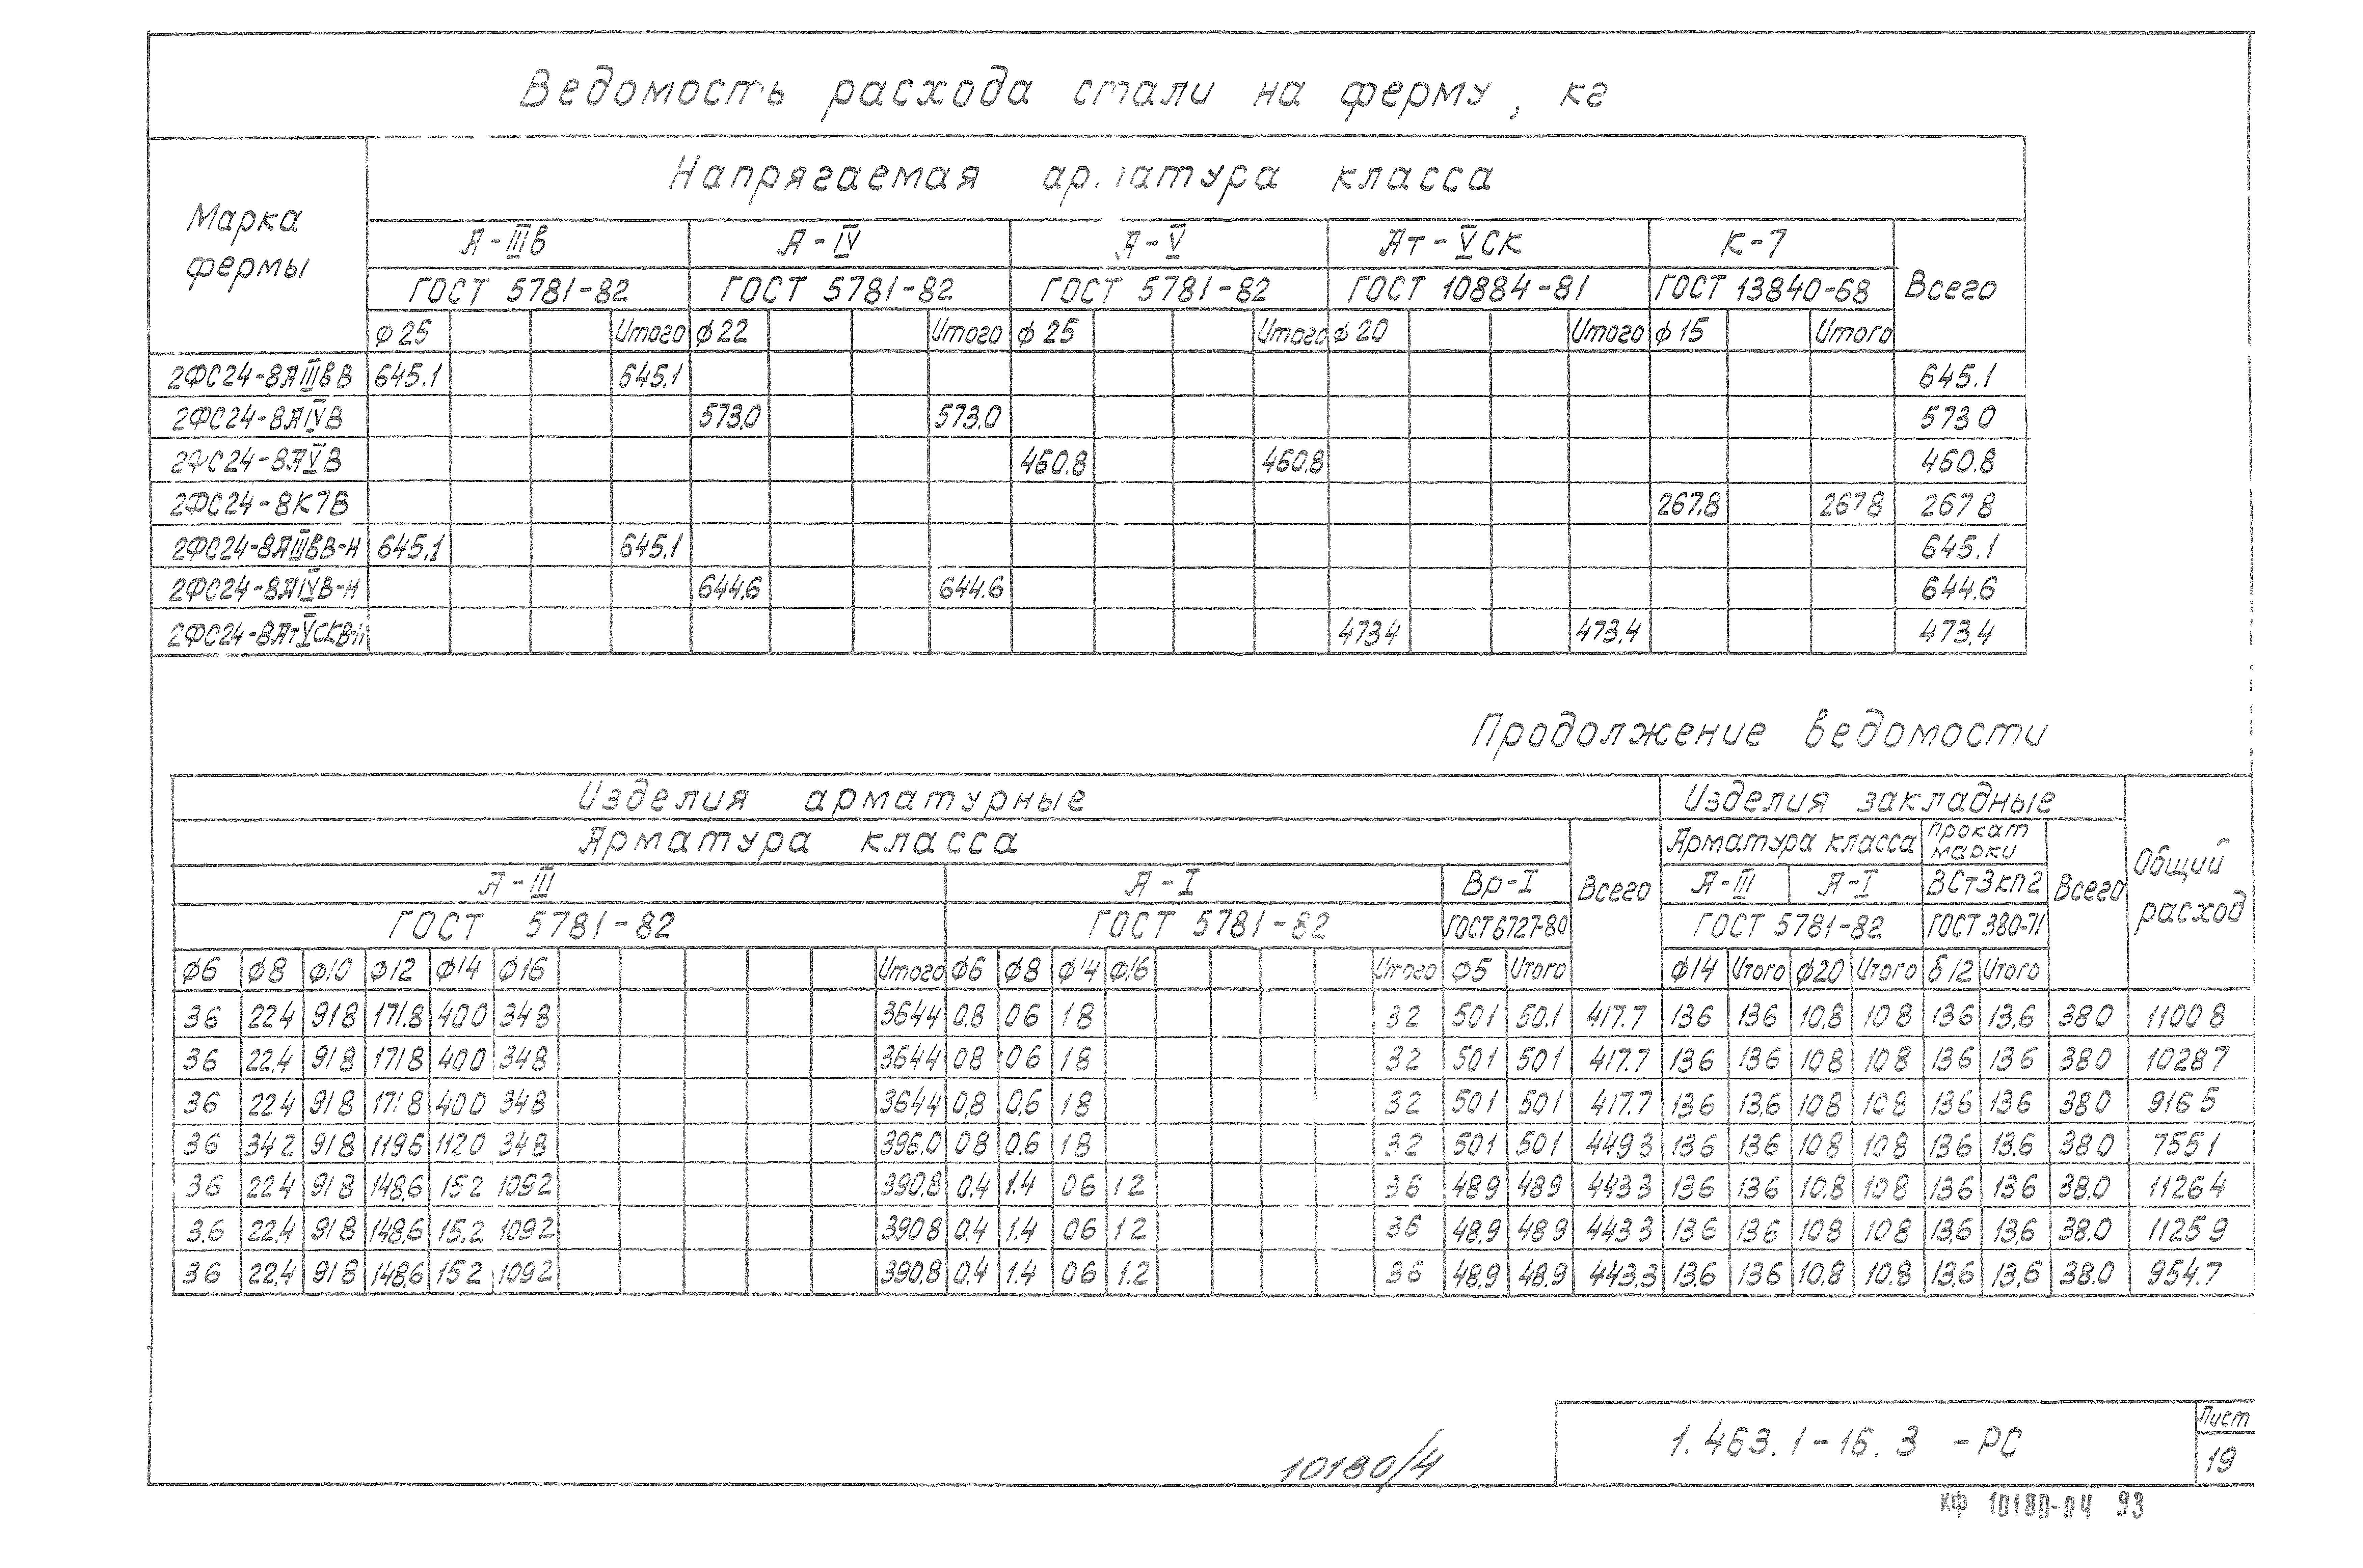 Ведомость расхода стали на ферму, кг
Марка фермы
Напрягаемая арматура класса
А-IIIв А-IV А-V Ат-VСК К-7 Всего
ГОСТ 5781-82 ГОСТ 5781-82 ГОСТ 5781-82 ГОСТ 10884-81 ГОСТ 13840-68
ф25 Итого ф22 Итого ф25 Итого ф20 Итого ф15 Итого
2ФС24-8АIIIвВ 645.1 645.1 645.1
2ФС24-8АIVВ 573.0 573.0 573 0
2ФС24-8АVВ 460.8 460.8 460.8
2ФС24-8К7В 267.8 267 8 267 8
2ФС24-8АIIIвВ-Н 645.1 645.1 645.1
2ФС24-8АIVВ-Н 644.6 644.6 644.6
2ФС24-8АтVСКВ-Н 473 4 473.4 473.4
Продолжение ведомости
Изделия арматурные Изделия закладные Общий расход
Арматура класса Всего Арматура класса Прокат марки Всего
А-III А-I Вр-I А-III А-I ВСт3кп2
ГОСТ 5781-82 ГОСТ 5781-82 ГОСТ 6727-80 ГОСТ 5781-82 ГОСТ 380-71
ф6 ф8 ф10 ф12 ф14 ф16 Итого ф6 ф8 ф14 ф16 Итого ф5 Итого ф14 Итого ф20 Итого δ12 Итого
3 6 22 4 91 8 171.8 40 0 34 8 364 4 0.8 0 6 1 8 3 2 50 1 50.1 417.7 13 6 13 6 10.8 10 8 13 6 13.6 38 0 1100 8
3 6 22.4 91 8 171 8 40 0 34 8 364 4 0 8 0 6 1 8 3 2 50 1 50 1 417.7 13 6 13 6 10 8 10 8 13 6 13 6 38 0 1028 7
3 6 22 4 91 8 171 8 40 0 34 8 364 4 0,8 0,6 1 8 3 2 50 1 50 1 417.7 13 6 13,6 10 8 10 8 13 6 13 6 38 0 916 5
3 6 34 2 91 8 119 6 112 0 34 8 396.0 0 8 0.6 1 8 3 2 50 1 50 1 449 3 13 6 13 6 10 8 10 8 13 6 13.6 38 0 755 1
3 6 22 4 91 8 148,6 15 2 109 2 390.8 0.4 1.4 0 6 1 2 3 6 48 9 48 9 443 3 13 6 13 6 10.8 10 8 13 6 13 6 38.0 1126 4
3.6 22.4 91 8 148,6 15.2 109 2 390 8 0.4 1.4 0 6 1 2 3 6 48.9 48 9 443 3 13 6 13 6 10 8 10 8 13,6 13,6 38.0 1125 9
3 6 22.4 91 8 148,6 15 2 109 2 390.8 0.4 1.4 0 6 1.2 3 6 48.9 48.9 443.3 13.6 13 6 10.8 10.8 13.6 13.6 38.0 954.7
1.463.1-16.3 -РС
Лист
19
10180/4
КФ 10180-04 93